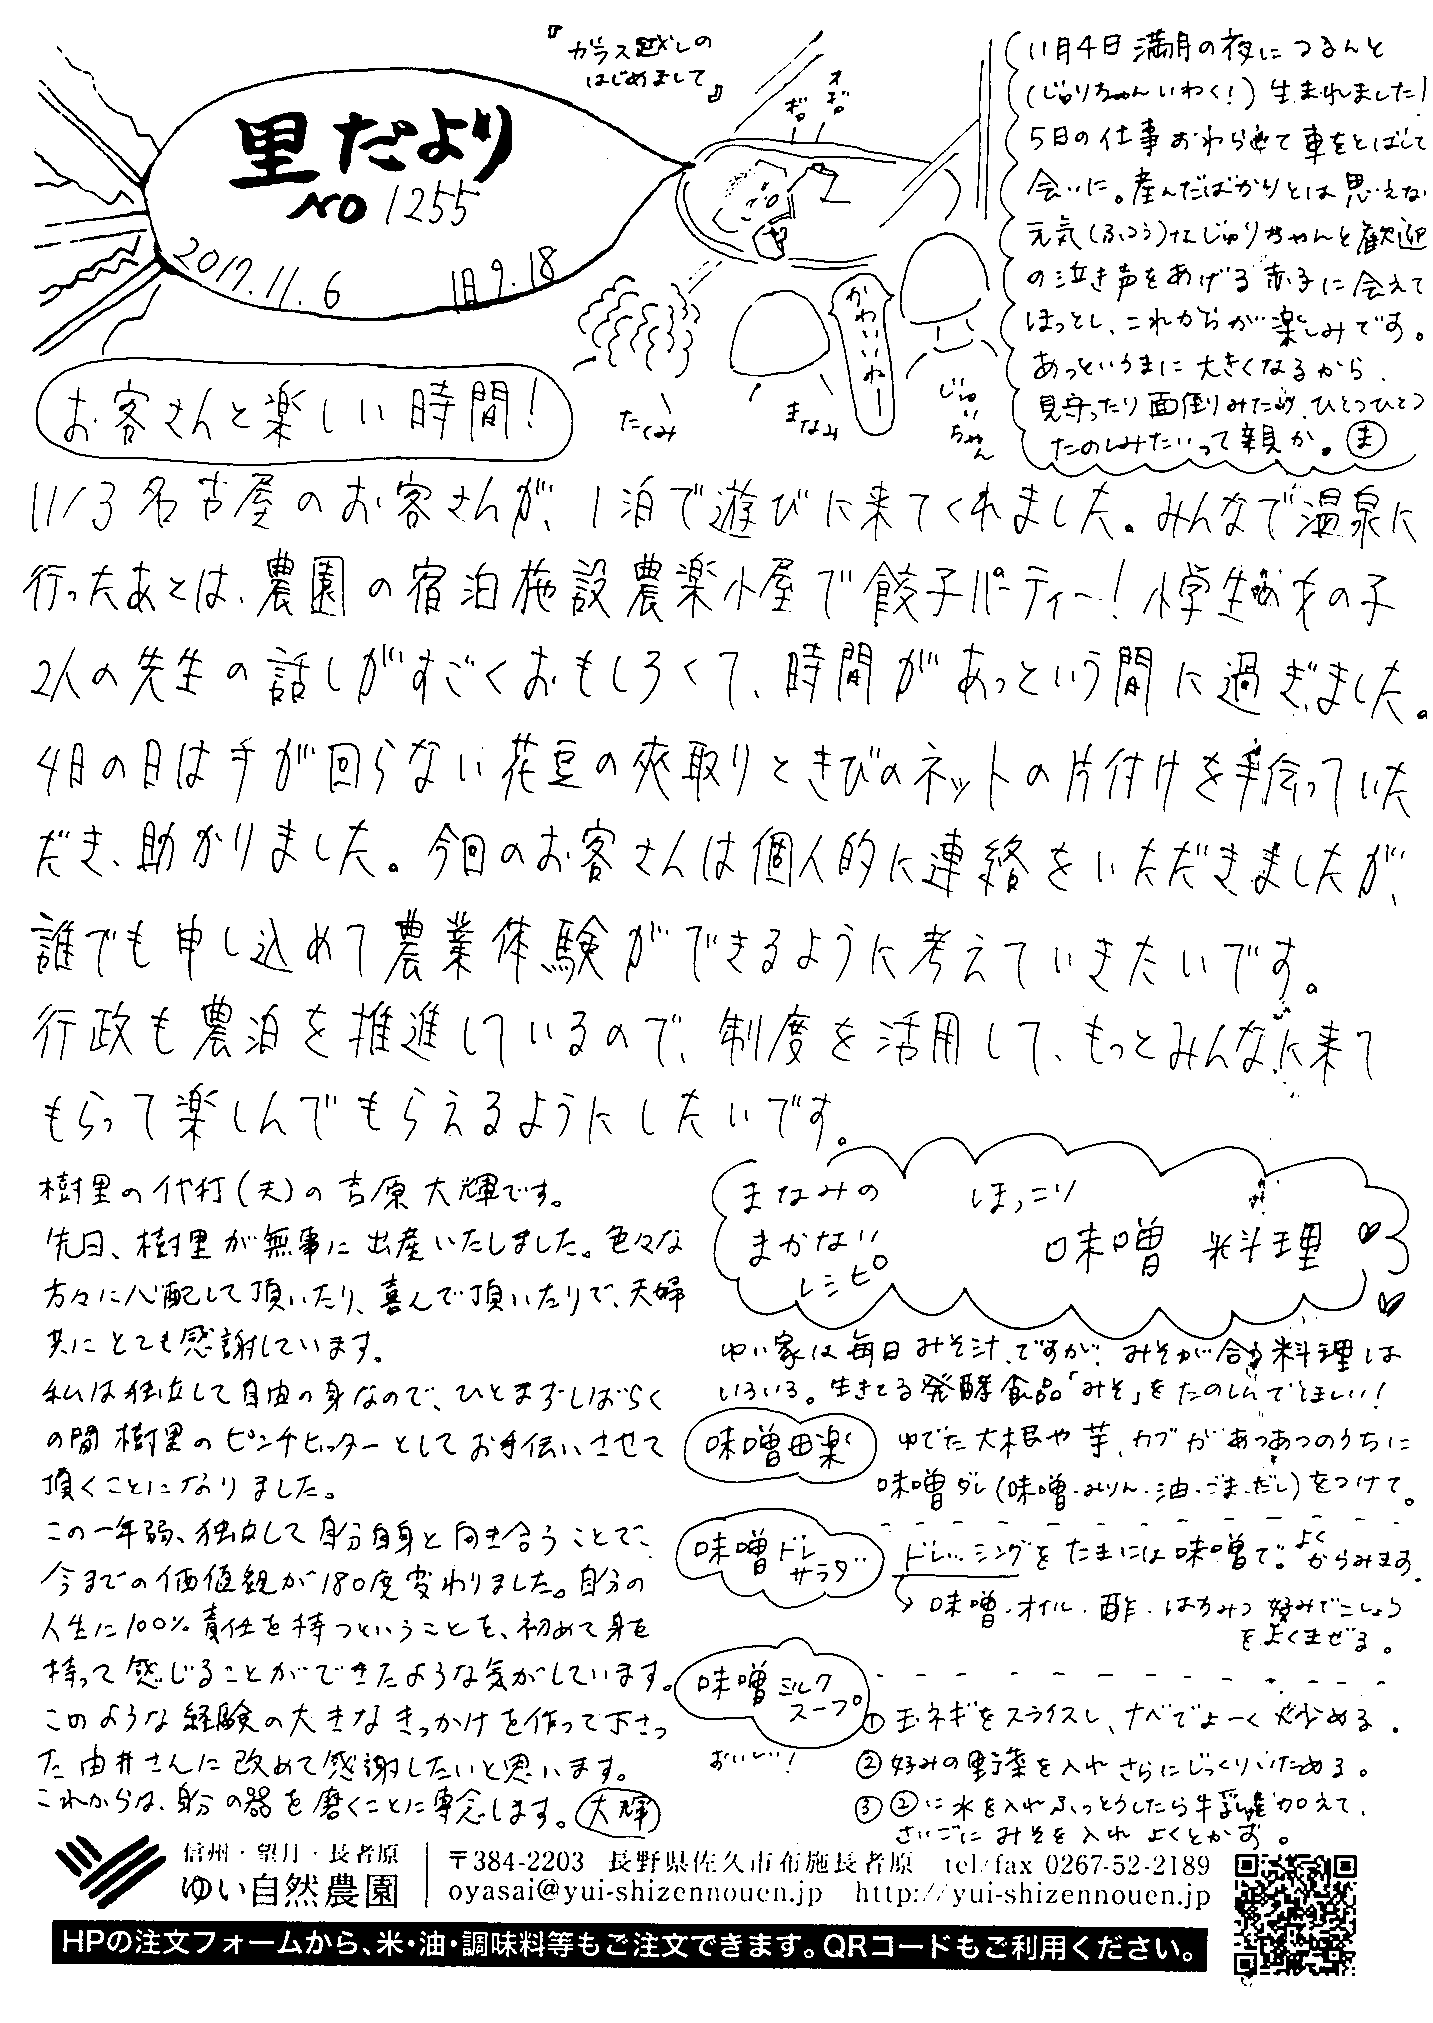 里だより
NO 1255
2017.11.6 旧9.18
『ガラス越しの
はじめまして』
オギャ
ギャ
かわいいねー
たくみ
まなみ
じゅいちゃん
11月4日満月の夜につるんと
(じゅりちゃんいわく!)生まれました!
5日の仕事おわらせて車をとばして
会いに。産んだばかりとは思えない
元気(ふつう)なじゅりちゃんと歓迎
の泣き声をあげる赤子に会えて
ほっとし、これからが楽しみです。
あっというまに大きくなるから、
見守ったり面倒みたり、ひとつひとつ
たのしみたいって親か。ま
お客さんと楽しい時間!
11/3名古屋のお客さんが、1泊で遊びに来てくれました。みんなで温泉に
行ったあとは、農園の宿泊施設農楽小屋で餃子パーティー!小学生の女の子
2人の先生の話しがすごくおもしろくて、時間があっという間に過ぎました。
4日の日は手が回らない花豆の莢取りときびのネットの片付けを手伝っていた
だき、助かりました。今回のお客さんは個人的に連絡をいただきましたが、
誰でも申し込めて農業体験ができるように考えていきたいです。
行政も農泊を推進しているので、制度を活用して、もっとみんなに来て
もらって楽しんでもらえるようにしたいです。
樹里の代打(夫)の吉原大輝です。
先日、樹里が無事に出産いたしました。色々な
方々に心配して頂いたり、喜んで頂いたりで、夫婦
共にとても感謝しています。
私は独立して自由の身なので、ひとまずしばらく
の間樹里のピンチヒッターとしてお手伝いさせて
頂くことになりました。
この一年弱、独立して自分自身と向き合うことで、
今までの価値観が180度変わりました。自分の
人生に100%責任を持つということを、初めて身を
持って感じることができたような気がしています。
このような経験の大きなきっかけを作って下さっ
た由井さんに改めて感謝したいと思います。
これからは、自分の器を磨くことに専念します。大輝
まなみの
まかない
レシピ
ほっこり
味噌料理
ゆい家は毎日みそ汁、ですが、みそが合う料理は
いろいろ。生きてる発酵食品「みそ」をたのしんでほしい!
味噌田楽
ゆでた大根や芋、カブがあつあつのうちに
味噌ダレ(味噌・みりん・油・ごま・だし)をつけて。
味噌ドレ
サラダ
ドレッシングをたまには味噌で。よく
からみます。
→味噌・オイル・酢・はちみつ 好みでこしょう
をよくまぜる。
味噌ミルク
スープ
おいしい!
①玉ネギをスライスし、ナベでよーく炒める。
②好みの野菜を入れさらにじっくりいためる。
③②に水を入れふっとうしたら牛乳加えて、
さいごにみそを入れよくとかす。
信州・望月・長者原
ゆい自然農園
〒384-2203 長野県佐久市布施長者原 tel/fax 0267-52-2189
oyasai@yui-shizennouen.jp http://yui-shizennouen.jp
HPの注文フォームから、米・油・調味料等もご注文できます。QRコードもご利用ください。